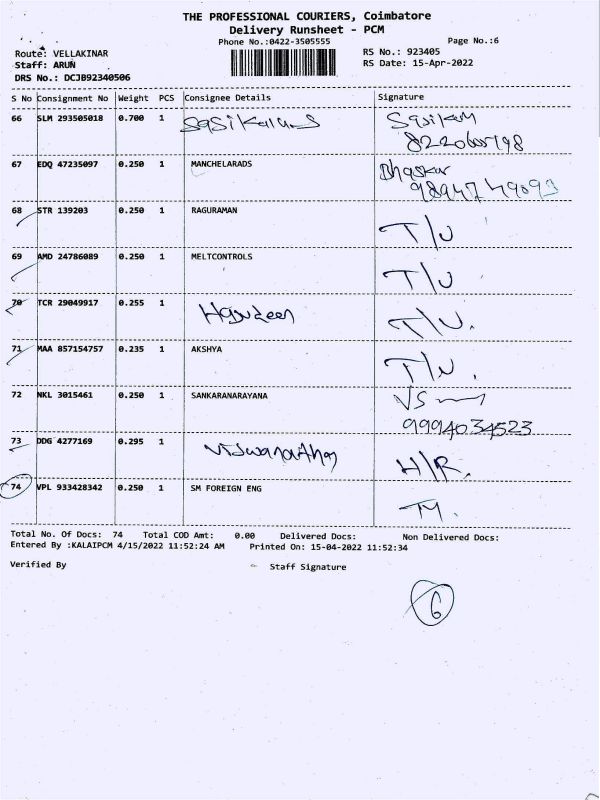 THE PROFESSIONAL COURIERS, Coimbatore
Delivery Runsheet - PCM
Phone No.:0422-3505555
Page No.:6
Route: VELLAKINAR
RS No.: 923405
Staff: ARUN
RS Date: 15-Apr-2022
DRS No.: DCJB92340506
S No Consignment No Weight PCS Consignee Details Signature
66 SLM 293505018 0.700 1 Sasikala
67 EDQ 47235097 0.250 1 MANCHELARADS Bhaskar
9894749093
68 STR 139203 0.250 1 RAGURAMAN T/U
69 AMD 24786089 0.250 1 MELTCONTROLS T/U
70 TCR 29049917 0.255 1 T/U.
71 MAA 857154757 0.235 1 AKSHYA T/U.
72 NKL 3015461 0.250 1 SANKARANARAYANA VS
9994034523
73 DDG 4277169 0.295 1 Viswanathan H/R.
74 VPL 933428342 0.250 1 SM FOREIGN ENG
Total No. Of Docs: 74 Total COD Amt: 0.00 Delivered Docs: Non Delivered Docs:
Entered By :KALAIPCM 4/15/2022 11:52:24 AM Printed On: 15-04-2022 11:52:34
Verified By Staff Signature
6